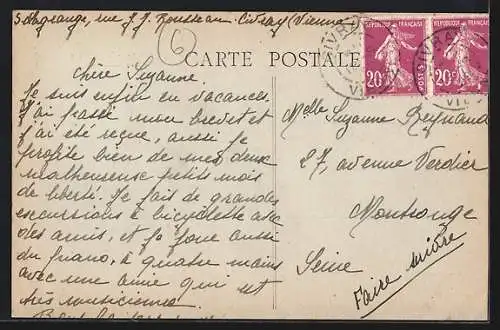 S. Lagrange, rue J. J. Rousseau. Civray (Vienne)
CARTE POSTALE
REPUBLIQUE FRANÇAISE
20c
POSTES
REPUBLIQUE FRANÇAISE
20c
CIVRAY
CIVRAY
6
Chère Suzanne.
Je suis enfin en vacances
j'ai passé mon brevet et
j'ai été reçue, aussi je
profite bien de mes deux
malheureux petits mois
de liberté. Je fais de grandes
excursions à bicyclette avec
des amis, et je joue aussi
du piano, à quatre mains
avec une amie qui est
très musicienne
Melle Suzanne Reynaud
27, avenue Verdier
Montrouge
Seine
Faire suivre